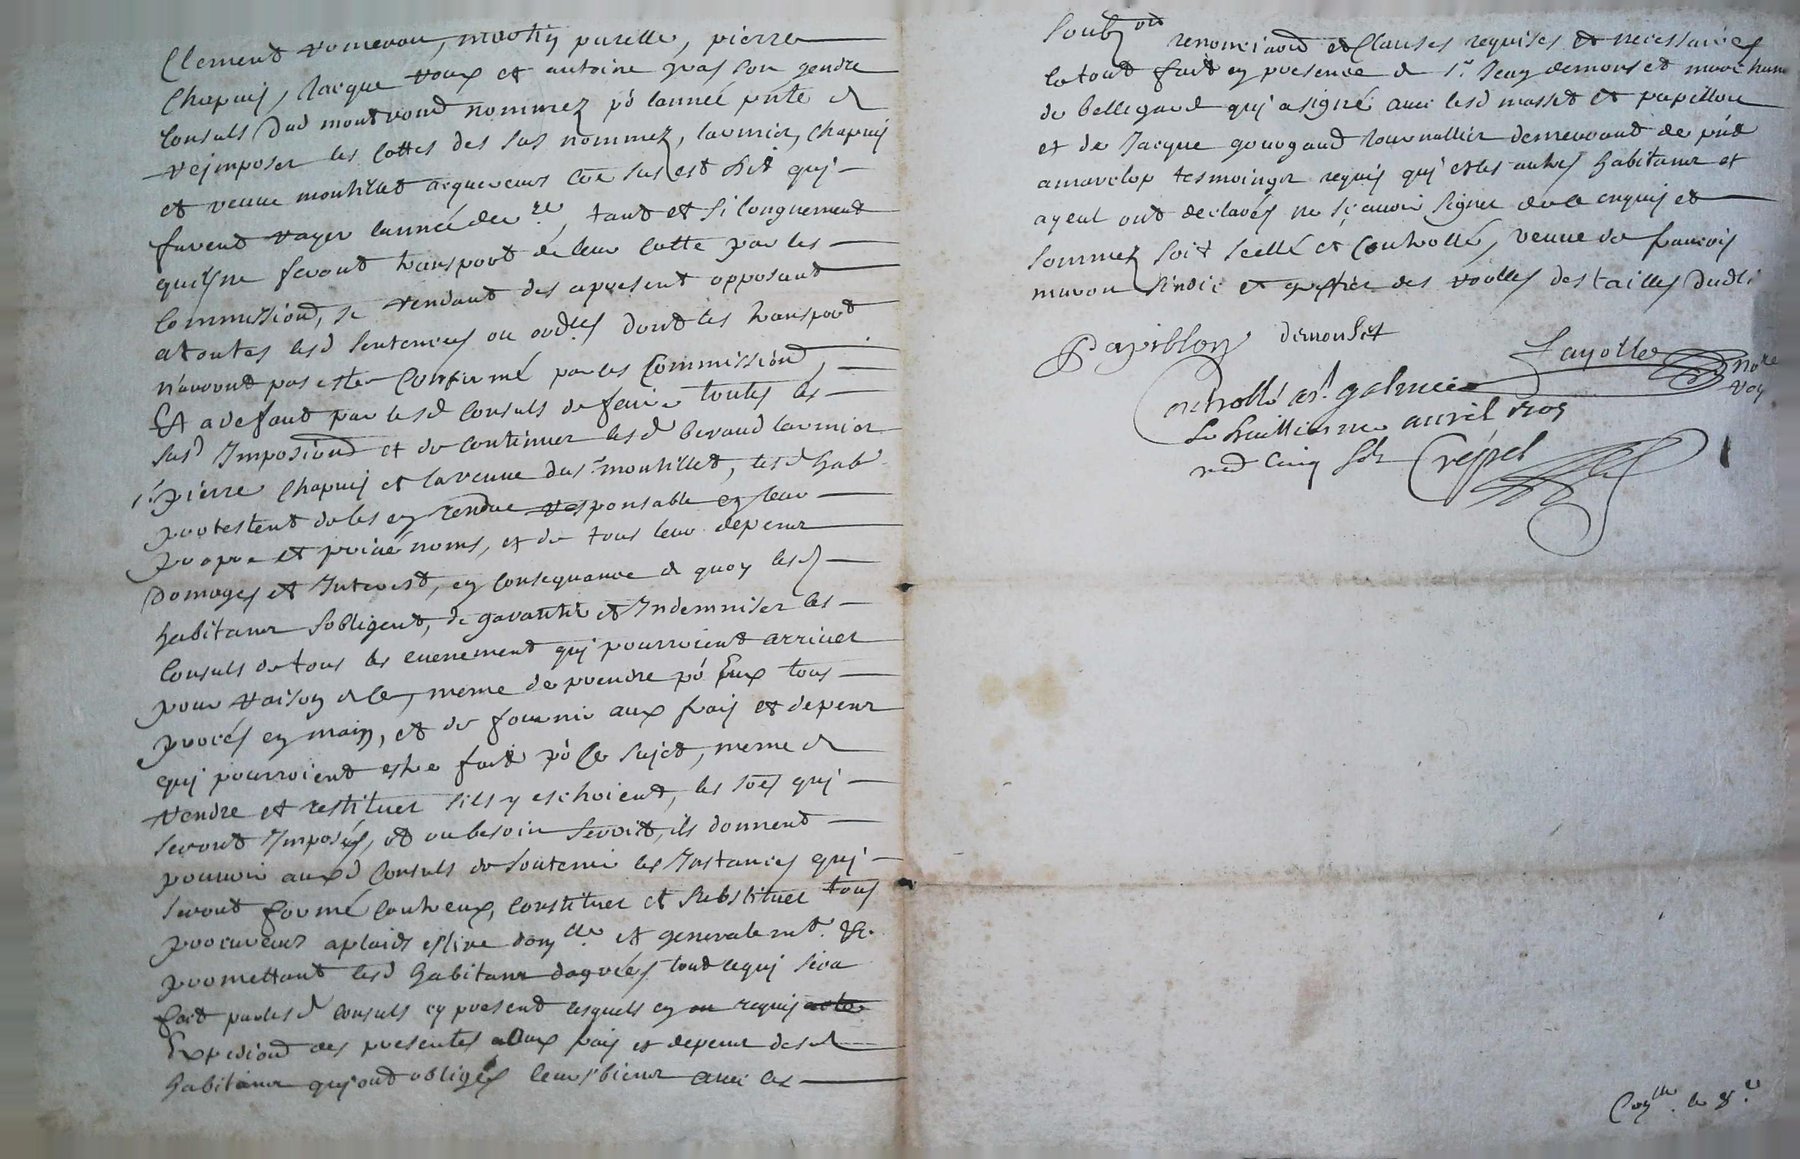 Clement vomeron, mathy purelle, pierre
Chapuis, Jacque roux et antoine gras son gendre
Consuls dud montrond nommez po lannée pnte de
reimposer les cottes des sus nommez, lavmier, Chapuis
et veuve montillet acquereurs come sus est dit qui
furent rayer lannée dere, tant et si longuement
quils ne feront transport de leur cotte par les
Commission, se rendant des apresent opposant
atoutes lesd sentences ou ordces dont les transport
nauront pas ester Confirmé par les Commission,
Et adefaut par lesd Consuls de faire toutes les
susd Imposiond et de continuer lesd beraud lavmier
sr pierre Chapuis et laveuve du sr montillet, lesd hab
protestent de les en rendre responsable en leur
propre et privé noms, et de tous leur depens
Domages et Interest, en consequance de quoy lesd
habitans sobligent, de garantir et Indemniser les
Consuls de tous les evenement qui pourroient arriver
pour raison de ce, meme de prendre po Eux tous
procés en main, et de fournir aux frais et depens
qui pourroient estre fait po ce sujet, meme de
rendre et restituer sils y eschoient, les soes qui
seront Imposés, et ou besoin seroit, ils donnent
pouvoir auxd Consuls de soutenir les Instances qui
seront formé contreux, constituer et substituer tous
procureurs aplaids eslire domclle et generalemt &c.
promettant lesd habitans dagréés tout cequi sera
fait par lesd Consuls cy present lesquels en on requis acte
Expediond des presentes aux frais et depens desd
habitans qui ont obligés leurs biens avec les
soubzon renonciaond et Clauses requises et necessaires
le tout fait en presence de sr Jean demonset marchand
de bellegarde qui a signé avec lesd masset et papillon
et de Jacque gourgaud Journallier demeurant de pnt
amarclop tesmoingz requis qui et les autres habitans et
ayeul ont declarés ne sçavoir signer de ce enquis et
sommez soit scellé et controllé, veuve de francois
maron sindic et greffier des roolles des tailles dudi
Papillon demonset
Fayolle nore roy
Controllé a st galmier
Le huitieme avril 1705
red cinq sols Crépet
Conlle. le 8e